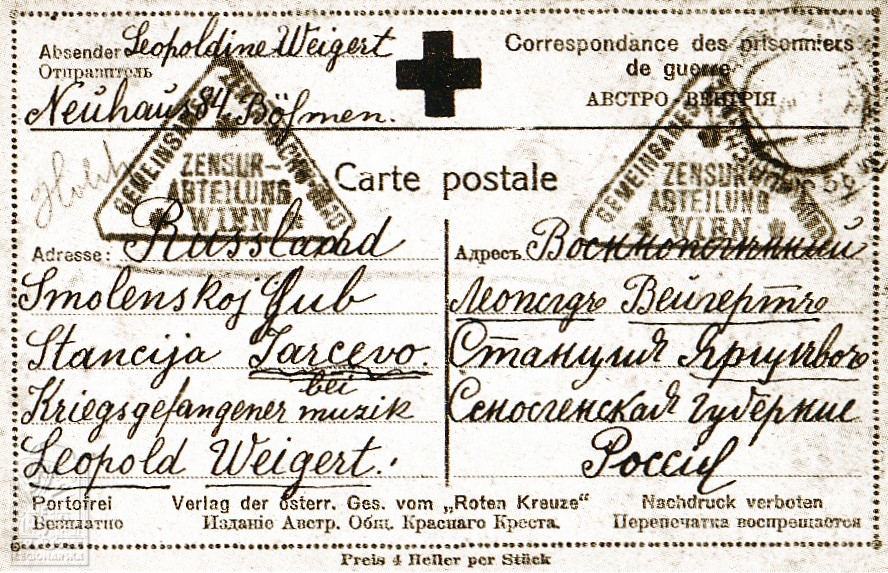 Absender Leopoldine Weigert
Отправитель
Neuhaus 84, Böhmen.
Correspondance des prisonniers
de guerre
АВСТРО-ВЕНГРІЯ
GEMEINSAMES
ZENSUR-
ABTEILUNG
WIEN
GEMEINSAMES
ZENSUR-
ABTEILUNG
WIEN
Carte postale
Adresse: Russland
Smolenskoj Gub
Stancija Jarcevo.
bei
Kriegsgefangener muzik
Leopold Weigert.
Адресъ Воєннополѣнный
Леополдъ Вейгертъ
Станция
Губерние
Россия
Portofrei Verlag der österr. Ges. vom „Roten Kreuze“ Nachdruck verboten
Безплатно Изданіе Австр. Общ. Краснаго Креста. Перепечатка воспрещается
Preis 4 Heller per Stück